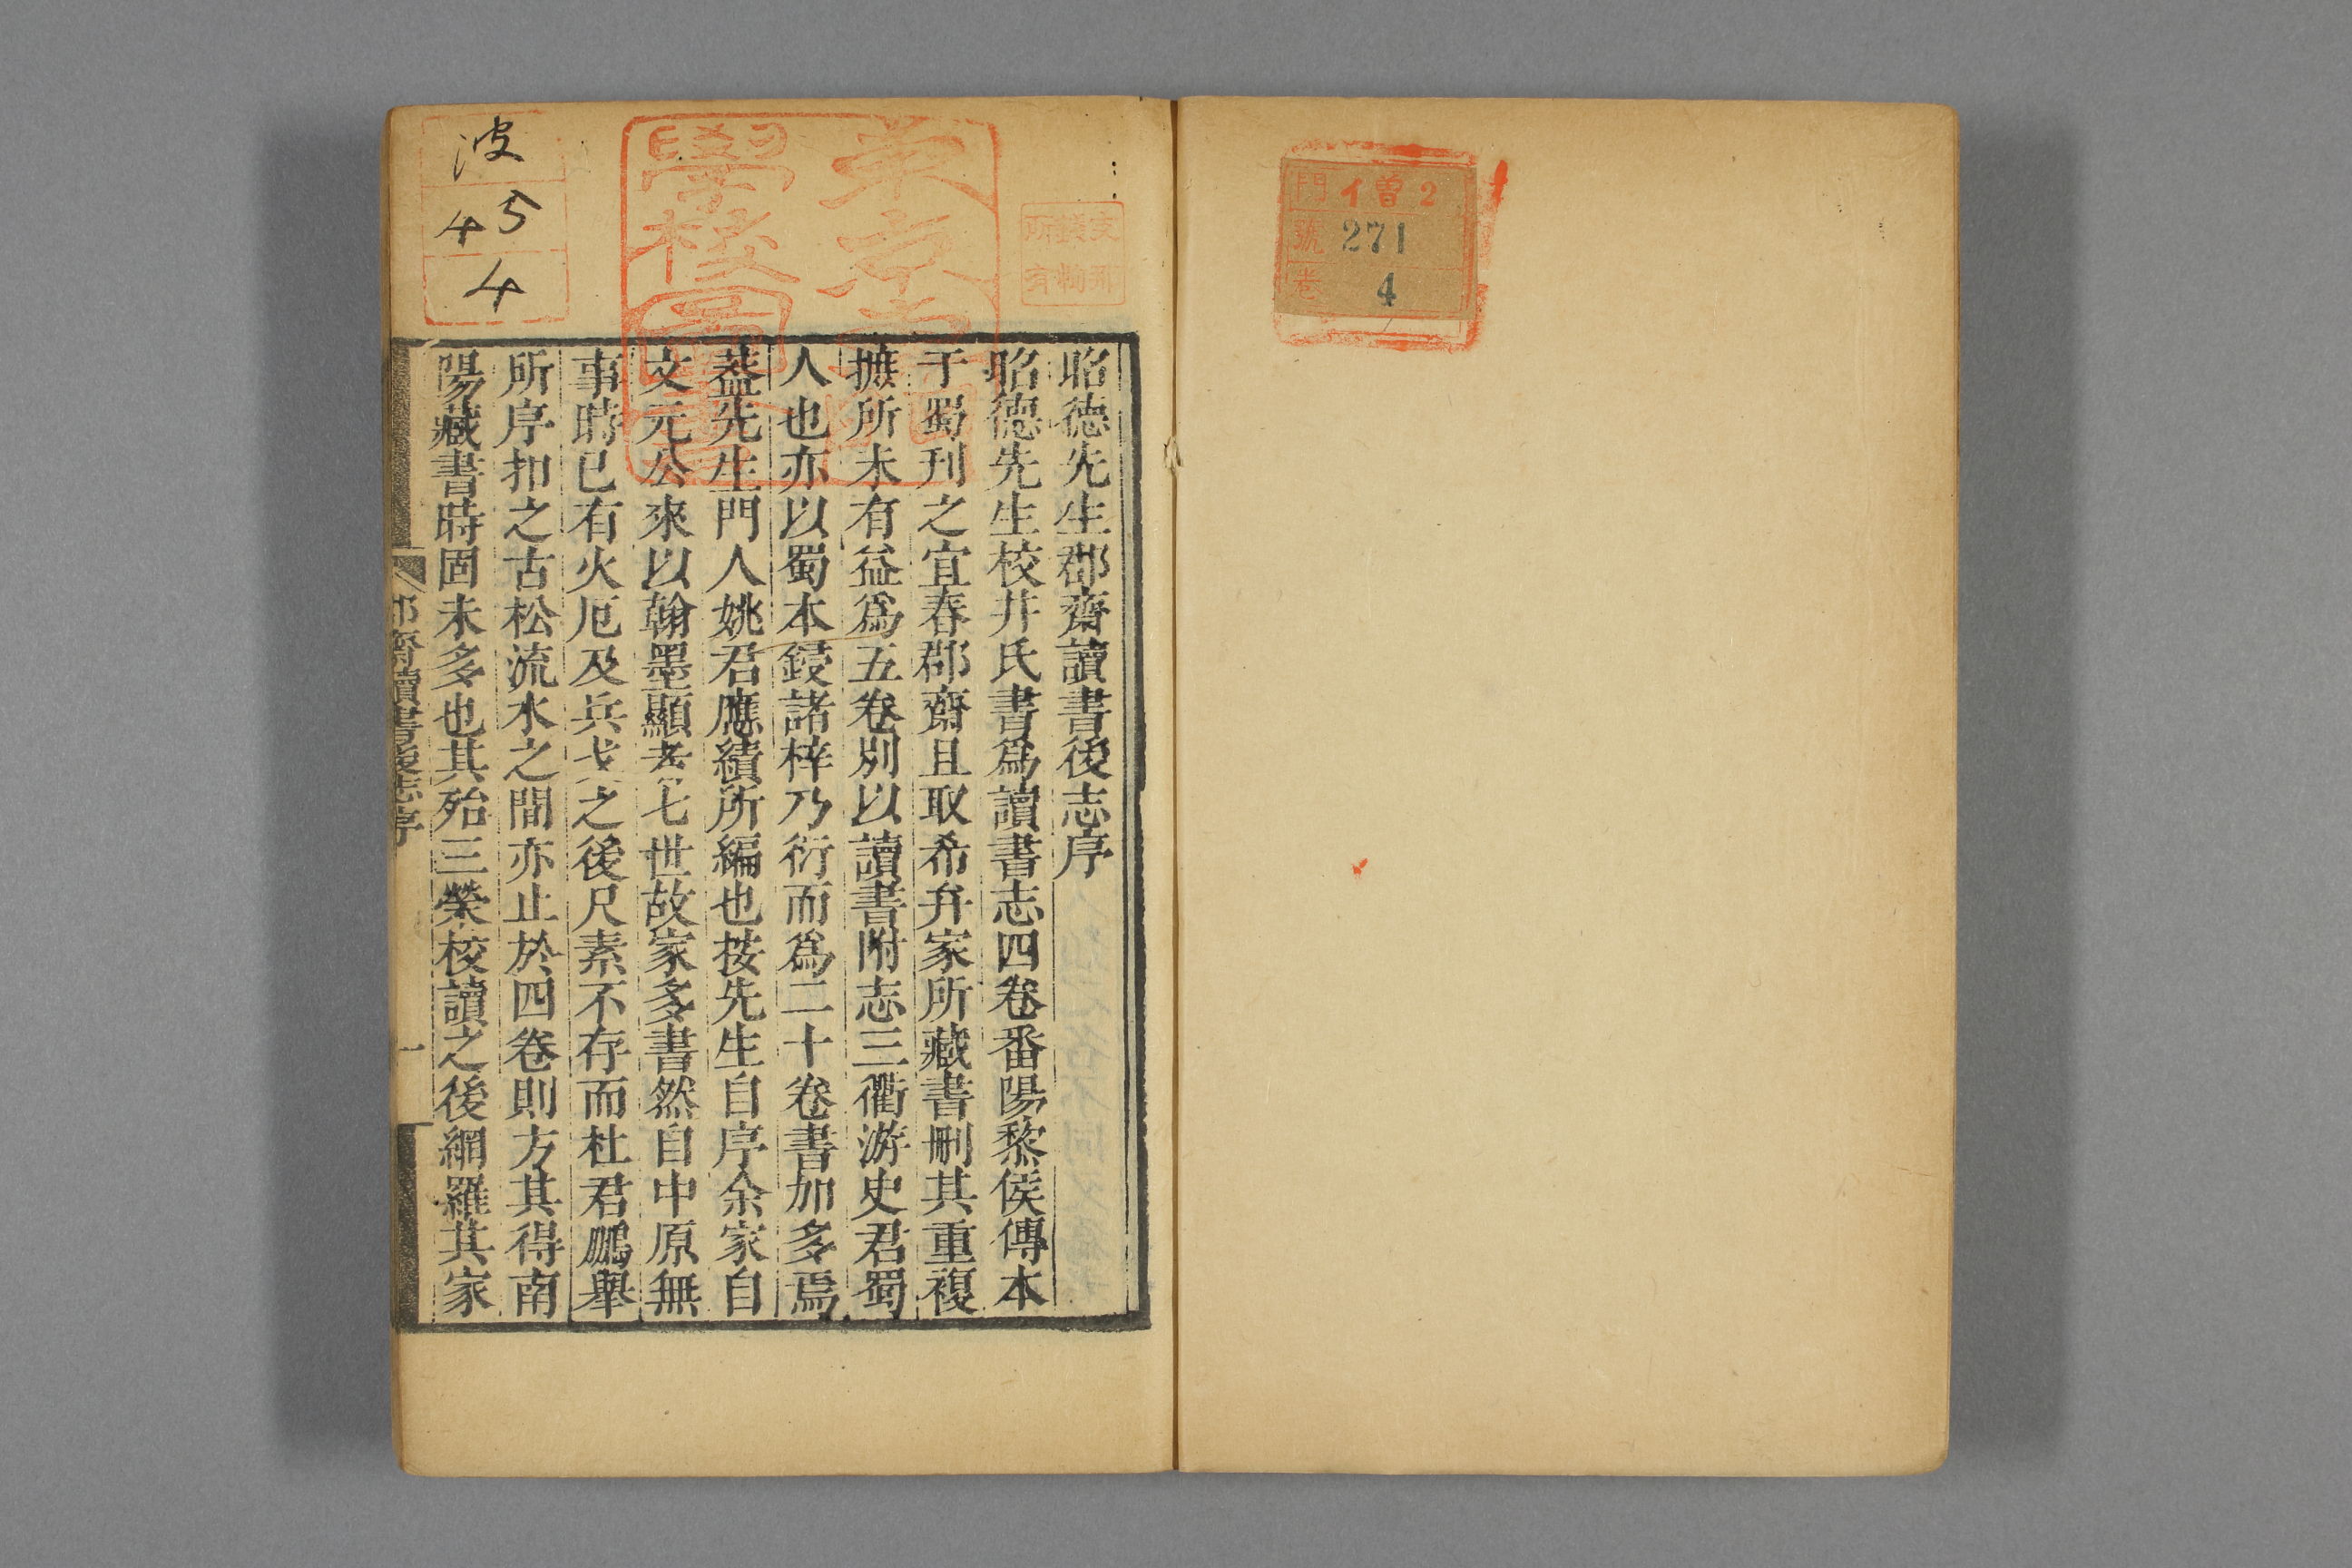 門 イ曽2
號 271
卷 4
昭德先生郡齋讀書後志序
昭德先生校井氏書爲讀書志四卷番陽黎侯傳本
于蜀刊之宜春郡齋且取希弁家所藏書刪其重複
摭所未有益爲五卷別以讀書附志三衢游史君蜀
人也亦以蜀本鋟諸梓乃衍而爲二十卷書加多焉
葢先生門人姚君應績所編也按先生自序余家自
文元公來以翰墨顯者七世故家多書然自中原無
事時已有火厄及兵戈之後尺素不存而杜君鵬舉
所序扣之古松流水之間亦止於四卷則方其得南
陽藏書時固未多也其殆三榮校讀之後網羅其家
郡齋讀書後志序
一
波
45
4